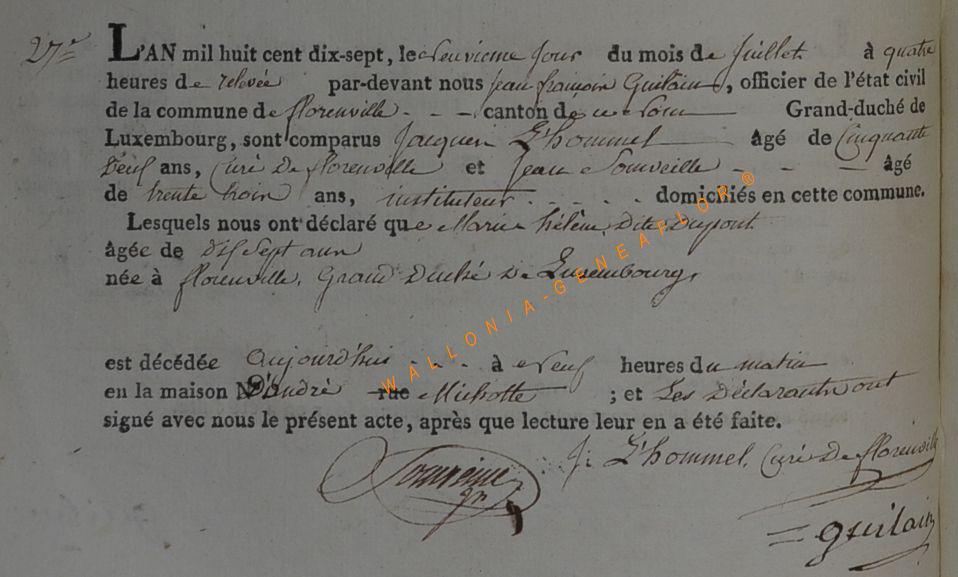 27e
L'AN mil huit cent dix-sept, le neuvieme jour du mois de juillet à quatre
heures de relevée par-devant nous jean françois Guilain, officier de l'état civil
de la commune de florenville - - - canton de Grand-duché de
Luxembourg, sont comparus Jacques L'hommel âgé de Cinquante
neuf ans, Curé De florenville et jean - - - âgé
de trente trois ans, instituteur - - - - domiciliés en cette commune.
Lesquels nous ont déclaré que Marie hélène Dite Dupont
âgée de dix Sept ans
née à florenville, Grand Duché De Luxembourg,
est décédée aujourd'hui - - - à neuf heures du matin
en la maison D'andré rue Michotte ; et Les Déclarants ont
signé avec nous le présent acte, après que lecture leur en a été faite.
j: L'hommel, Curé De florenville
guilain
WALLONIA-GENEAFLOR ®